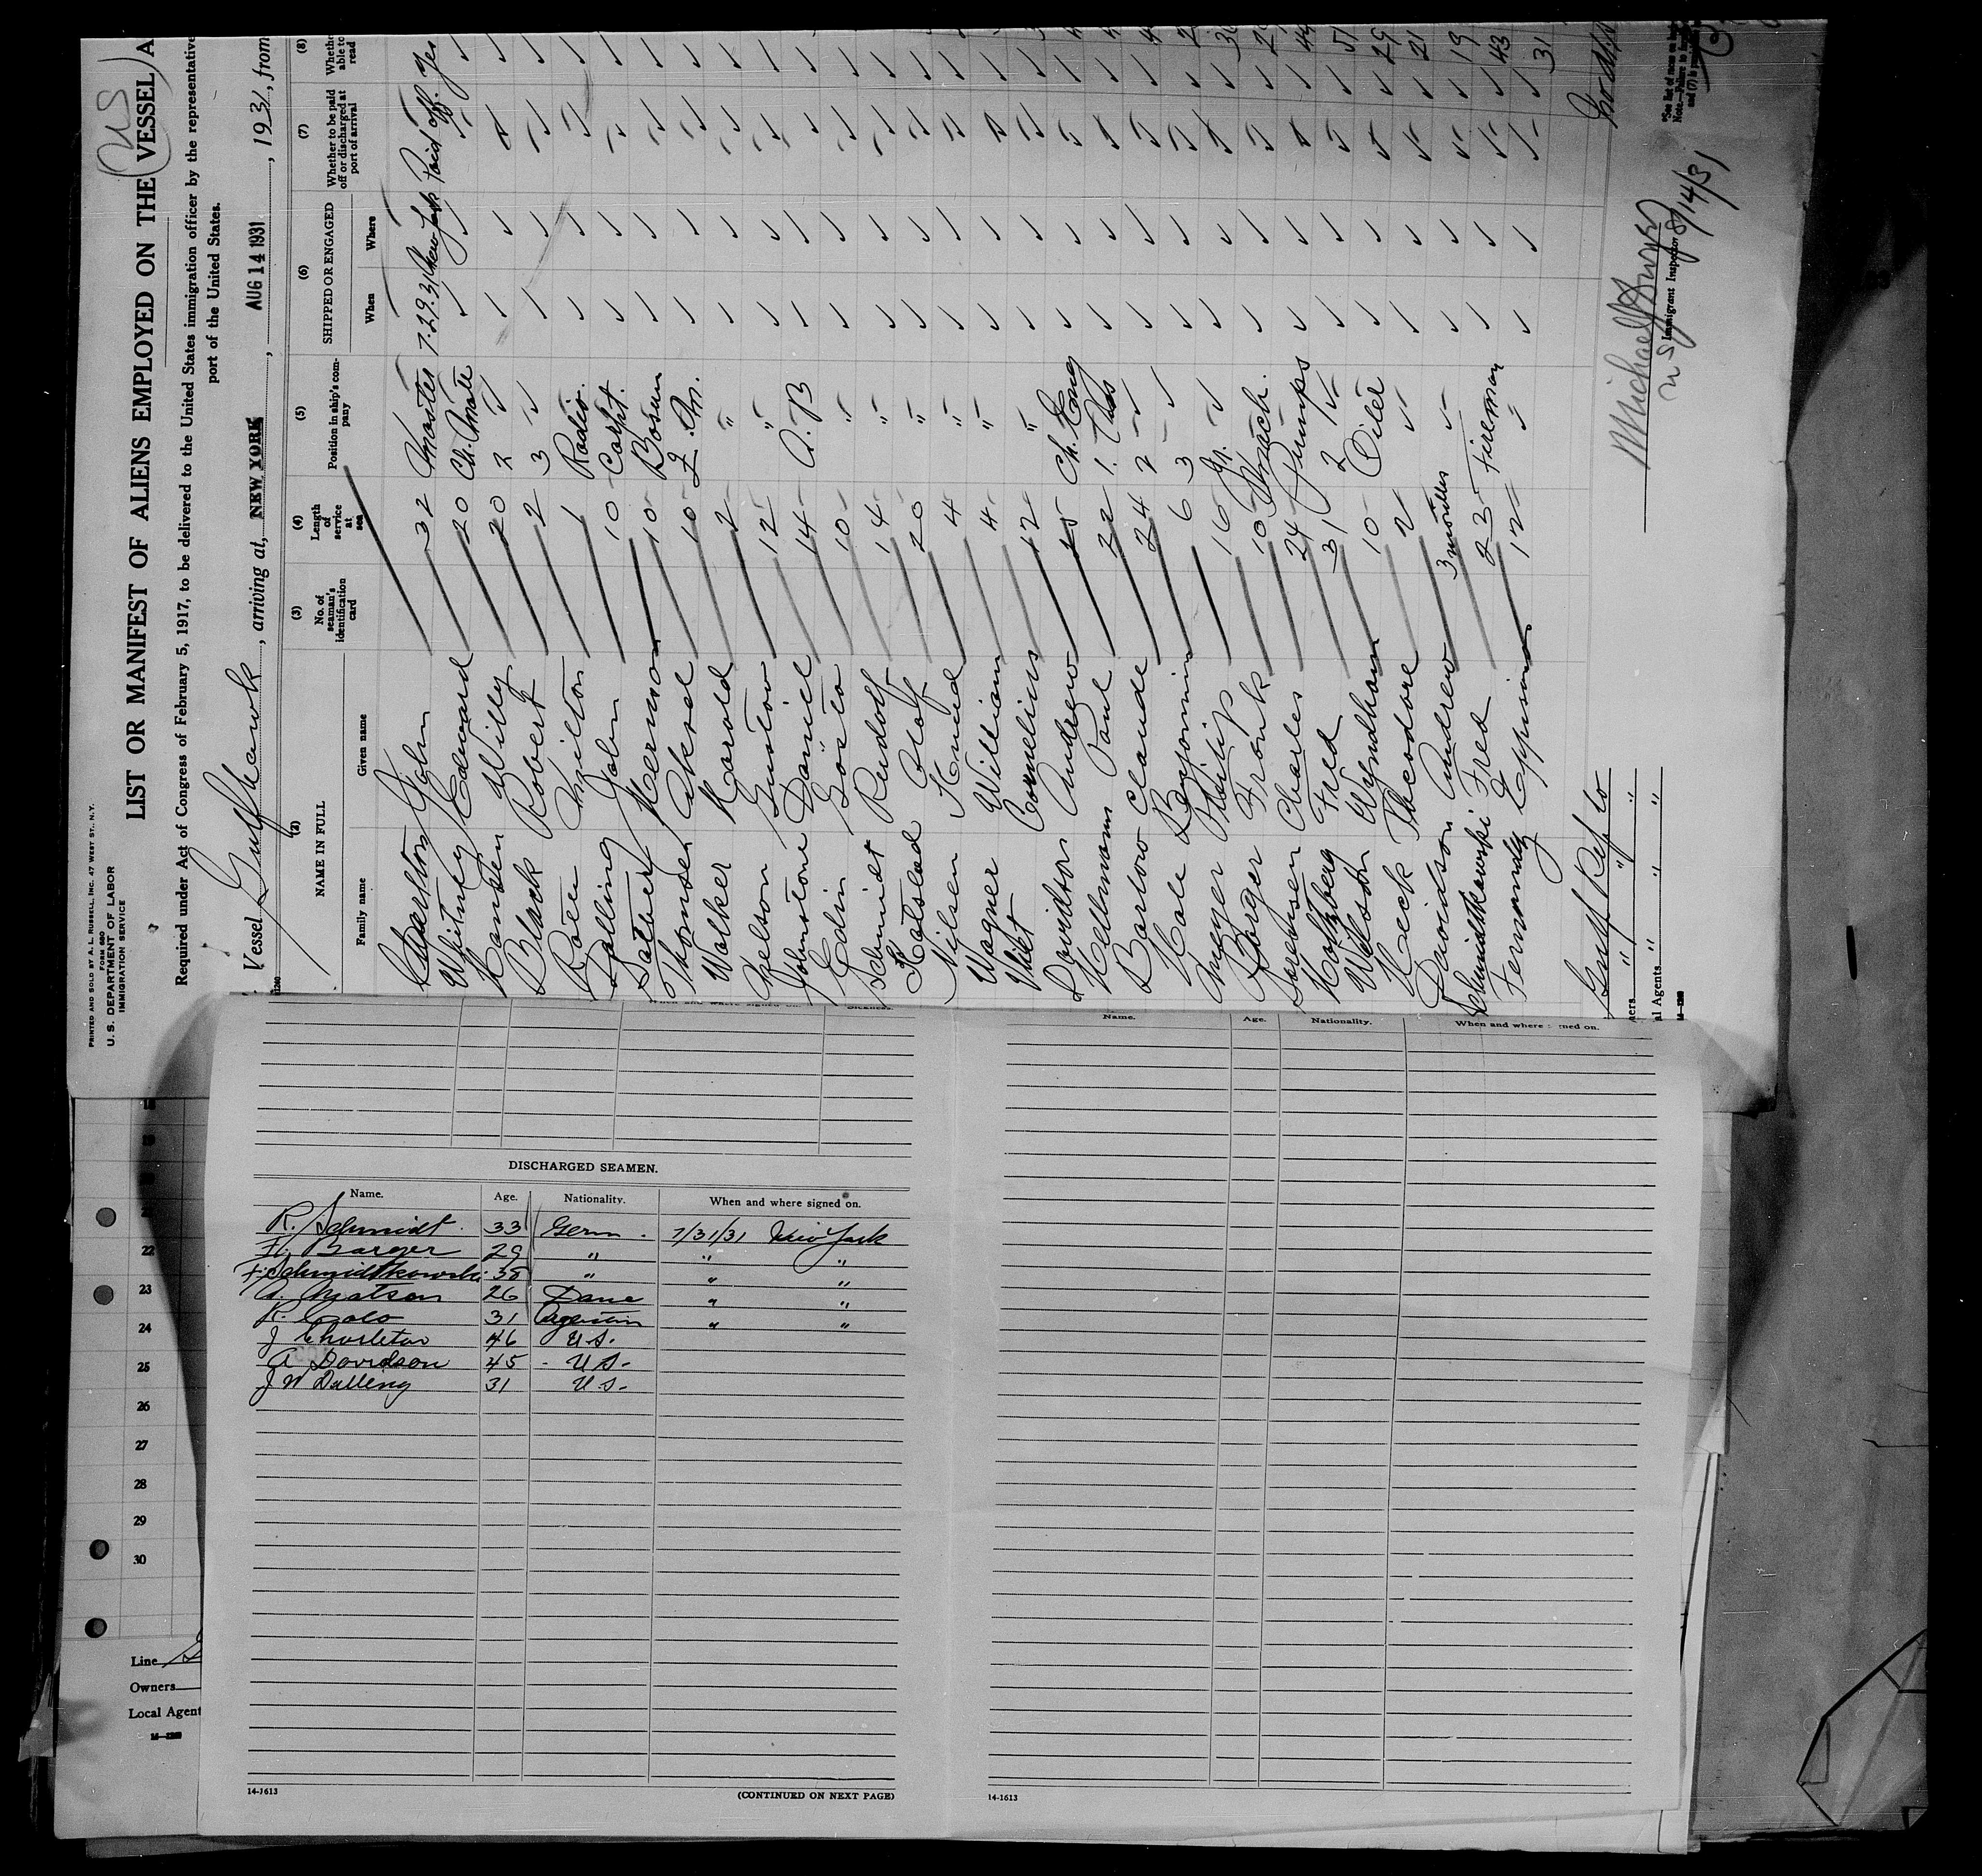 PRINTED AND SOLD BY A. L. RUSSELL, INC. 47 WEST ST., N.Y.
FORM 680
U. S. DEPARTMENT OF LABOR
IMMIGRATION SERVICE
LIST OR MANIFEST OF ALIENS EMPLOYED ON THE VESSEL A
US
Required under Act of Congress of February 5, 1917, to be delivered to the United States immigration officer by the representative
port of the United States.
Vessel Gulfhawk, arriving at, NEW YORK, AUG 14 1931, 1931, from
(2) (3) (4) (5) (6) (7) (8)
NAME IN FULL
Family name Given name
No. of seaman's identification card
Length of service at sea
Position in ship's company
SHIPPED OR ENGAGED
When Where
Whether to be paid off or discharged at port of arrival
Whether able to read
Charlton John 32 Master 7.29.31 New York Paid off. Yes
Whitney Edward 20 Ch. Mate
Hansen Willy 20 2 "
Black Robert 2 3 "
Roen Milton 1 Radio.
Dalling John 10 Carpt.
Salter Herman 10 Bosun
Thomsen Aksel 10 Q. M.
Walker Harold 2 "
Nelson Gustow 12 "
Johnstone Daniel 14 A. B
Edin Gösta 10 "
Schmidt Rudolf 14 "
Kalstad Olaf 20 "
Nilsen Knud 4 "
Wagner William 4 "
Vliet Cornelius 12 "
Davidson Andrew 25 Ch. Eng
Hellmann Paul 22 1. Ass
Barlow Claude 24 2 "
Hale Benjamin 6 3 "
Meyer Philip 16 Jr. "
Barger Frank 10 Mach.
Sorensen Charles 24 Pumps
Holtzberg Fred 31 2 "
Welsdon Wyndham 10 Oiler
Heck Theodore 2 "
Davidson Andrew 3 months "
Schmidtkowski Fred 23 Fireman
Fernandez Epprimo 12 "
29
44
51
29
21
19
43
31
Gulf Ref Co
ners " " "
al Agents " " "
Michael
U S Immigrant Inspector 8/14/31
DISCHARGED SEAMEN.
Name. Age. Nationality. When and where signed on.
R. Schmidt. 33 Germ. 7/31/31 New York
F. Barger 29 " " "
F. Schmidtkowski 38 " " "
A. Matson 26 Dane " "
R. Calo 31 Argentin " "
J Charleton 46 U S.
A Davidson 45 - U S-
J W Dalling 31 U S-
14-1613 (CONTINUED ON NEXT PAGE)
Name. Age. Nationality. When and where signed on.
14-1613
22
23
24
25
26
27
28
29
30
Line
Owners
Local Agent